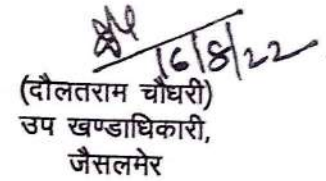 16/8/22
(दौलतराम चौधरी)
उप खण्डाधिकारी,
जैसलमेर